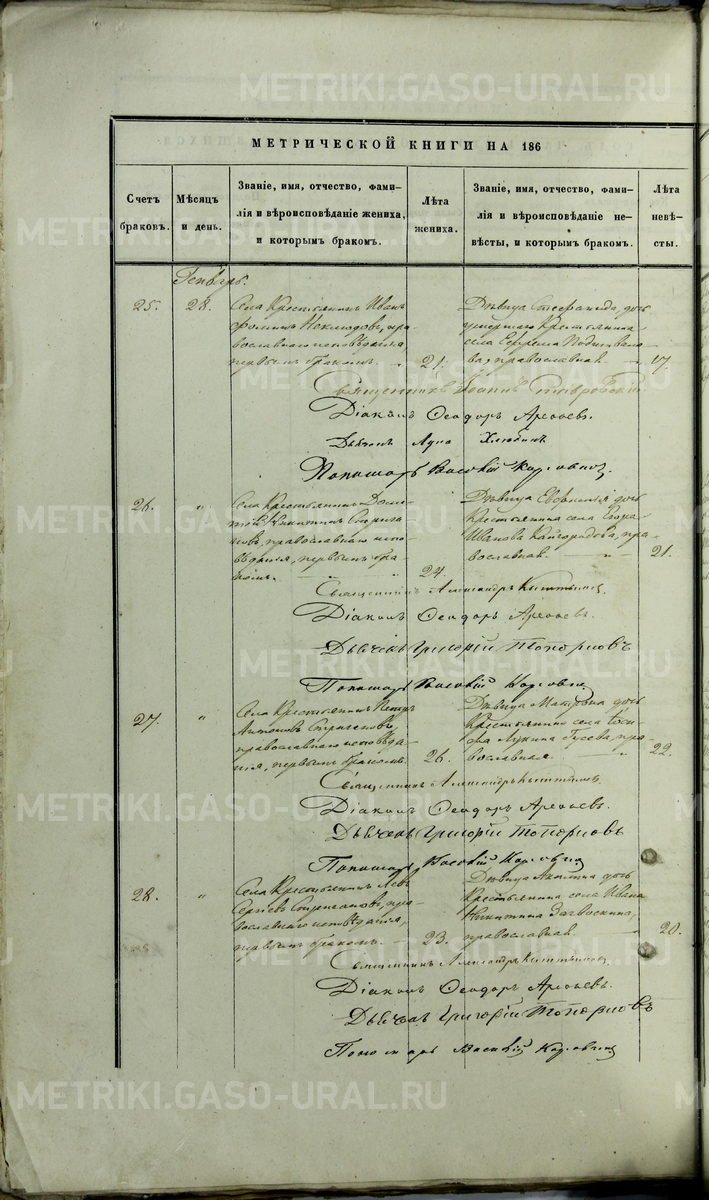 METRIKI.GASO-URAL.RU
МЕТРИЧЕСКОЙ КНИГИ НА 186
Счетъ
браковъ.
Мѣсяцъ
и день.
Званіе, имя, отчество, фами-
лія и вѣроисповѣданіе жениха,
и которымъ бракомъ.
Лѣта
жениха.
Званіе, имя, отчество, фами-
лія и вѣроисповѣданіе не-
вѣсты, и которымъ бракомъ.
Лѣта
невѣ-
сты.
Генварь.
25.
28.
Села Крестьянинъ Иванъ
Ѳоминъ Неклюдовъ, пра-
вославнаго исповѣданія,
первымъ бракомъ.
21.
Дѣвица Стефанида, дочь
умершаго Крестьянина
села Ефрема
православная
17.
Священникъ Іоаннъ
Діаконъ Ѳеодоръ Арефьевъ.
Дьячекъ Хлюбинъ
Пономарь Василій
26.
"
Села Крестьянинъ
Никитинъ
православнаго испо-
вѣданія, первымъ бра-
комъ.
24.
Дѣвица Евфимія дочь
Крестьянина села Егора
Иванова Кайгородова, пра-
вославная
21.
Священникъ Александръ
Діаконъ Ѳеодоръ Арефьевъ.
Дьячекъ Григорій Топорковъ
Пономарь Василій
27.
"
Села Крестьянинъ Петръ
Антоновъ Стригановъ,
православнаго исповѣда-
нія, первымъ бракомъ.
26.
Дѣвица Матрона дочь
Крестьянина села Іоси-
фа Лукина Гусева, пра-
вославная.
22.
Священникъ Александръ
Діаконъ Ѳеодоръ Арефьевъ.
Дьячекъ Григорій Топорковъ
Пономарь Василій
28.
"
Села Крестьянинъ Левъ
Сергѣевъ Стригановъ, пра-
вославнаго исповѣданія,
первымъ бракомъ.
23.
Дѣвица Акилина дочь
Крестьянина села Ивана
Никитина Загвоскина,
православная
20.
Священникъ Александръ
Діаконъ Ѳеодоръ Арефьевъ.
Дьячекъ Григорій Топорковъ
Пономарь Василій
METRIKI.GASO-URAL.RU